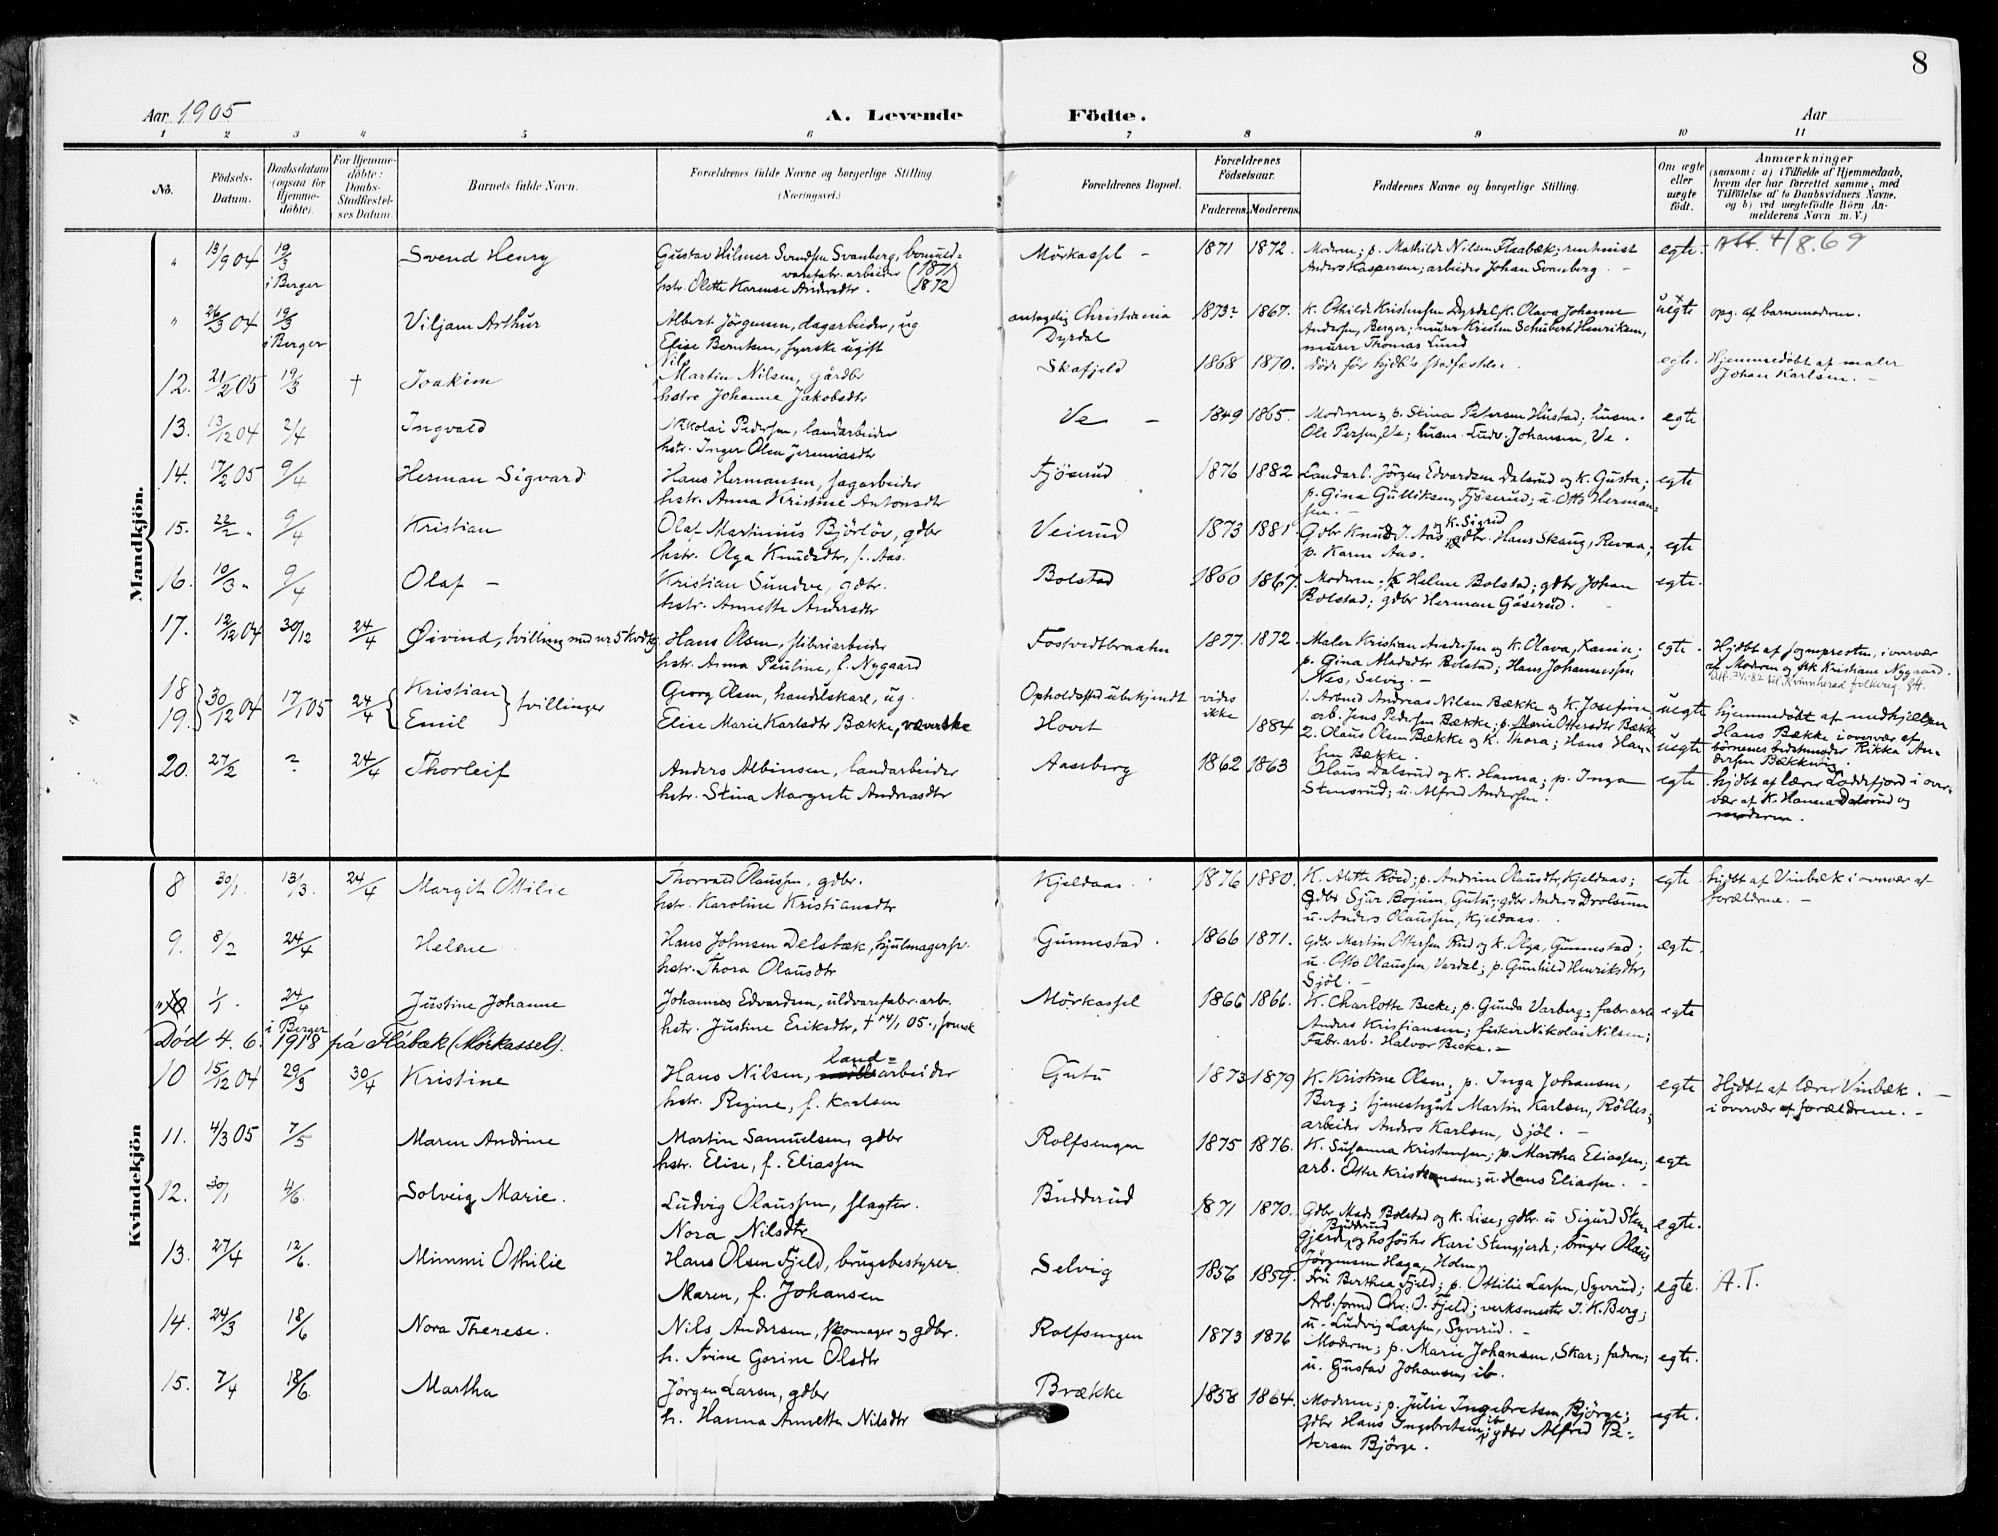 8
Aar 1905
A. Levende
Födte.
Aar
1 2 3 4 5 6 7 8 9 10 11
No.
Födsels-Datum.
Daabsdatum (ogsaa for Hjemme-döbte).
For Hjemme-döbte: Daabs-Stadfæstel-ses Datum.
Barnets fulde Navn.
Forældrenes fulde Navne og borgerlige Stilling (Næringsvei.)
Forældrenes Bopæl.
Forældrenes Födselsaar.
Faderens. Moderens.
Faddernes Navne og borgerlige Stilling.
Om ægte eller uægte födt.
Anmærkninger
(saasom: a) i Tilfælde af Hjemmedaab, hvem der har forrettet samme, med Tilföielse af to Daabsvidners Navne, og b) ved uægtefödte Börn An-melderens Navn m. V.)
Mandkjön.
" 13/9 04 19/3 i Berger Svend Henry
Gustav Hilmer Svendsen Svanberg, bomuld-
varefabr. arbeider (1871)
hstr. Olette Karense Andersdtr. 1872)
Mörkassel - 1871 1872.
Moderen; p. Mathilde Nilsen Flaabæk; rentenist
Anders Kaspersen; arbeider Johan Svanberg. -
egte. Att. 4/8.69
" 26/3 04 19/3 i Berger Viljam Arthur
Albert Jörgensen, dagarbeider, ug
Elise Berntsen, syerske ugift
antagelig Christiania
Dyrdal
1873? 1867.
K. Othilde Kristensen Dyrdal, K. Olava Johanne
Andersen, Berger; murer Kristen Schubert Henriksen,
murer Thomas Lund
uegte opg. af barnemoderen.
12. 21/2 05 19/3 † Joakim
Nils
Martin Nilsen, gårdbr
hstre Johanne Jakobsdtr
Skafjeld 1868 1870. döde för hjdb's stadfæstelse. egte.
Hjemmedöbt af maler
Johan Karlsen. -
13. 13/12 04 2/4 Ingvald
Nikolai Pedersen, landarbeider
hstr. Inger Olea Jeremiasdtr
Ve - 1849 1865.
Moderen, p. Stina Petersen Hustad; husm.
Ole Persen, Ve; husm. Ludv. Johansen, Ve.
egte
14. 17/2 05 9/4 Herman Sigvard
Hans Hermansen, sagarbeider
hstr. Anna Kristine Antonsdtr
Fjöserud 1876 1882
Landarb. Jörgen Edvardsen Dalsrud og K. Gusta;
p. Gina Gulliksen, Fjöserud; u. Otto Herman-
sen. -
egte
15. 22/2 " 9/4 Kristian
Olaf Martinius Björlöv, gdbr
hstr. Olga Knudsdtr, f. Aas.
Veierud 1873 1881
og K. Sigrid
Gdbr Knud J. Aas; gdbr. Hans Skaug, Revaa;
p. Karen Aas.
egte
16. 10/3 " 9/4 Olaf -
Kristian Sundve, gdbr.
hstr. Annette Andersdtr
Bolstad 1860 1867.
Moderen; p. Helene Bolstad; gdbr Johan
Bolstad; gdbr Herman Gåserud.
egte.
17. 12/12 04 30/12 24/4 Øivind, tvilling med nr. 5 kvdkj.
Hans Olsen, sliberiarbeider
hstr. Anna Pauline, f. Nygaard
Fostvedtbraaten 1877. 1872.
Maler Kristian Andersen og K. Olava, Ranvei;
p. Gina Madsdtr Bolstad; Hans Johannessen
Nes, Selvig. -
egte.
Hjdbt af sognepresten, i overvær
af Moderen og frk Kristiane Nygaard.
Att. 24.-82 til Kvinnherad folkereg.
18
19. 30/12 04 17/1 05 24/4 Kristian
Emil tvillinger
Georg Olsen, handelskarl, ug.
Elise Marie Karlsdtr Bække, væverske
Opholdssted ubekjendt
Hovet
vides ikke 1884
1. Arbeid Andreas Nilsen Bække og K. Josefine,
arb. Jens Pedersen Bække; p. Marie Ottersdtr Bække
2. Olaus Olsen Bække og K. Thora; Hans Han-
sen Bække.
uegte
uegte
hjemmedöbt af medhjælper
Hans Bække i overvær af
börnenes bestemoder Rikka An-
dersen Bækkevig.
20. 27/2 ? 24/4 Thorleif
Anders Albinsen, landarbeider
hstr. Stina Margrete Andreasdtr
Aaseberg 1862 1863
Olaus Dalsrud og K. Hanna; p. Inga
Stensrud; u. Alfred Andersen.
egte
hjdbt af lærer Loddefjord i over-
vær af K. Hanna Dalsrud og
moderen.
Kvindekjön
8 30/1 13/3. 24/4 Margit Otilie
Thorvald Olaussen, gdbr.
hstr. Karoline Kristiansdtr
Kjeldaas 1876 1880.
K. Alette Röed; p. Andrine Olausdtr, Kjeldaas;
gdbr Sjur Bojum, Gutu; gdbr Anders Drolsum
u. Anders Olaussen, Kjeldaas.
egte
hjdbt af Vinbæk i overvær af
forældrene. -
9. 8/2 24/4 Helene
Hans Johnsen Delebæk, hjulmagersv.
hstr. Thora Olausdtr
Gunnestad. 1866 1871.
Gdbr Martin Ottersen Rud og K. Olga, Gunnestad;
u. Otto Olaussen, Vardal; p. Gunhild Henriksdtr,
Sjöl. -
ægte.
" 1/1. 24/4 i Berger Justine Johanne
Johannes Edvardsen, uldvarefabr. arb.
hstr. Justine Eriksdtr, † 14/1 05., svensk
Mörkassel 1866 1866.
K. Charlotte Becke; p. Gunda Varberg; fabr. arb
Anders Kristiansen; fisker Nikolai Nilsen;
Fabr. arb. Halvor Becke. -
egte
Död 4. 6. 1918 på Flåbæk (Mörkassel).
10 15/12 04 29/3 30/4 Kristine
land=
Hans Nilsen, arbeider
hstr. Regine, f. Karlsen
Gutu 1873 1879
K. Kristine Olsen; p. Inga Johansen,
Berg; tjenestegut Martin Karlsen, Rölles;
arbeider Anders Karlsen, Sjöl. -
egte
Hjdbt af lærer Vinbæk. -
i overvær af forældrene. -
11. 4/3 05 7/5 Maren Andrine
Martin Samuelsen, gdbr
hstr. Elise, f. Eliassen
Rolfsengen 1875 1876.
K. Susanna Kristensen; p. Martha Eliassen;
arb. Otter Kristensen; u. Hans Eliassen. -
egte
12. 30/1 4/6. Solveig Marie.
Ludvig Olaussen, slagter.
Nora Nilsdtr
Budderud 1871 1870.
Gdbr Mads Bolstad og K. Lise; gdbr. u Sigurd Sten-
Budderud
gjerde, og hs söster Kari Stengjerde; bruger Olaus
Jörgensen Haga, Holm.
egte.
13. 27/4 12/6. Mimmi Othilie
Hans Olsen Fjeld, brugsbestyrer.
Maren, f. Johansen
Selvig 1856 1859.
Fru Berthea Fjeld; p. Ottilie Larsen, Syverud;
Arb. formd Chr. O. Fjeld; verksmester J. K. Berg;
u. Ludvig Larsen, Syverud. -
egte. A.T.
14. 24/3 18/6 Nora Therese.
Nils Andersen, skomager og gdbr.
h. Trine Gorine Olsdtr
Rolfsengen 1873 1876
Moderen; p. Marie Johansen, Skar; faderen;
u. Gustav Johansen, ib.
egte.
15. 7/4 18/6. Martha
Jörgen Larsen, gdbr
h. Hanna Annette Nilsdtr
Brække 1858 1864.
Moderen; p. Julie Ingebretsen, Björge;
ib
Gdbr Hans Ingebretsen; gdbr Alfred Pe-
tersen Björge.
egte.